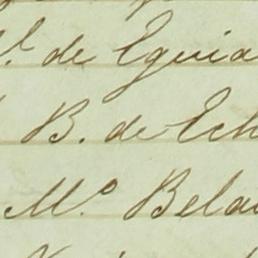 de Eguia
B. de Ech
Mº Bela